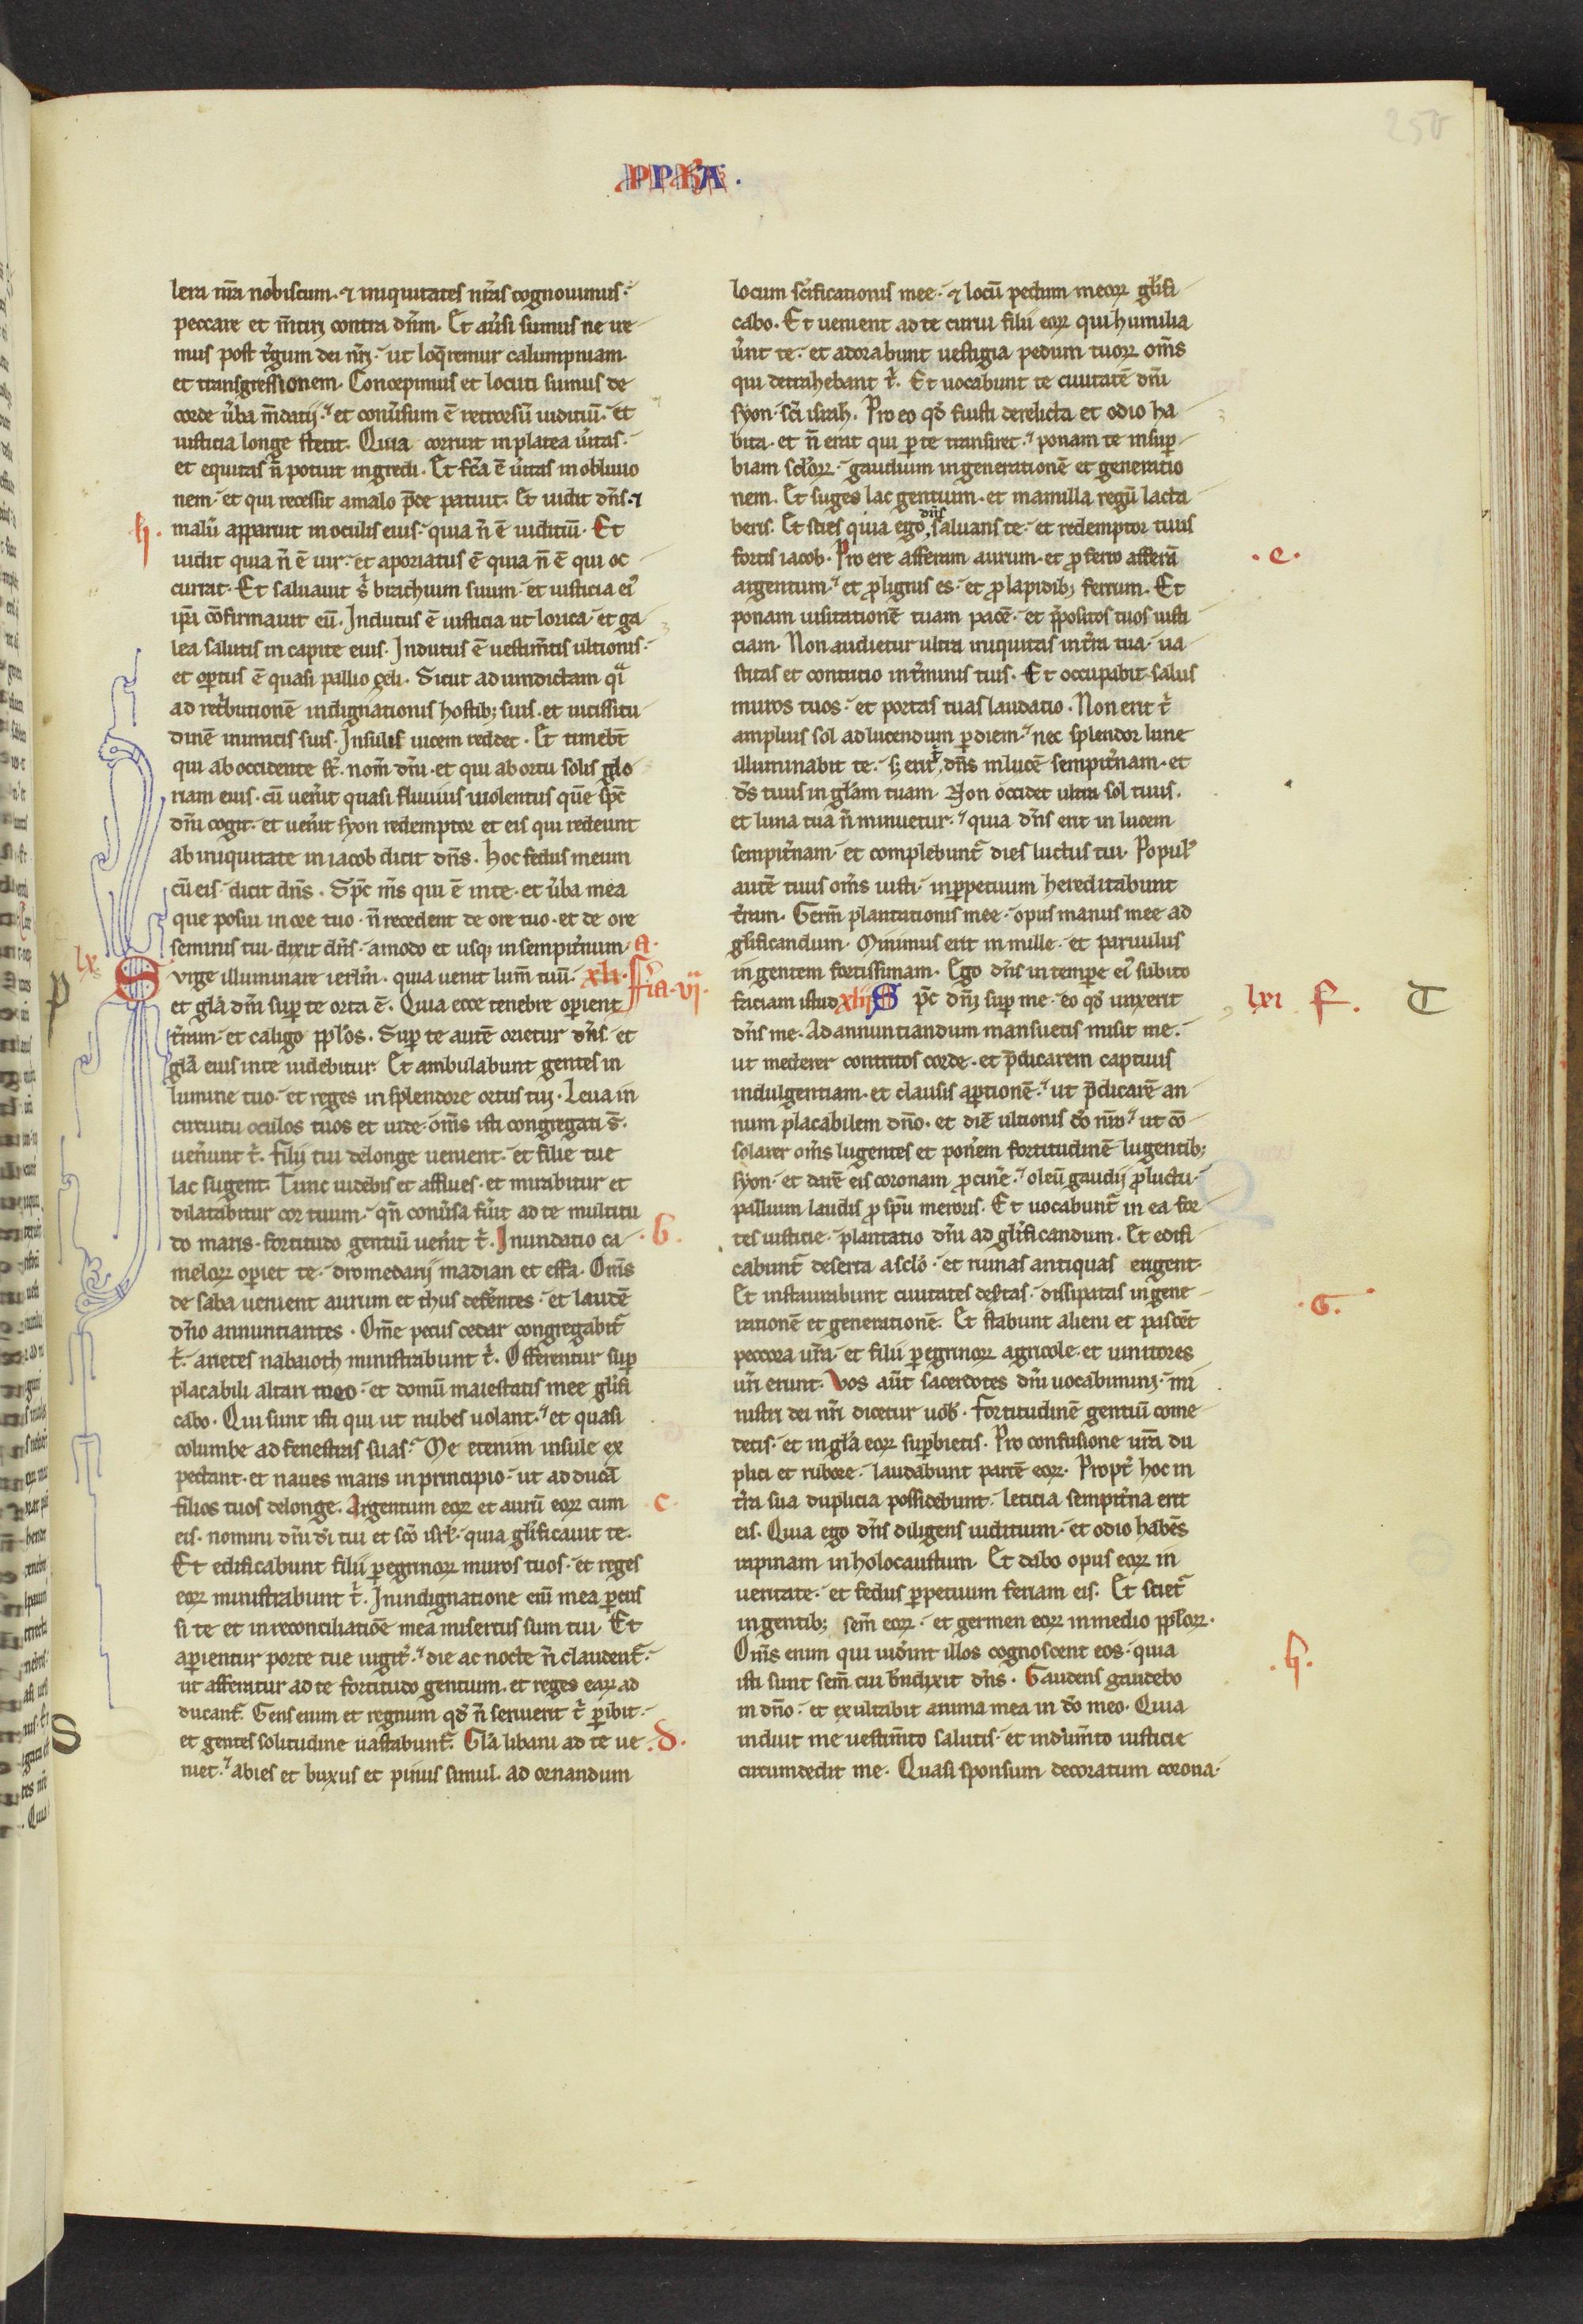 250
PPHA.
lera nr̄a nobiscum. ⁊ iniquitates nr̄as cognouimus.
peccare et m̄tiri contra dn̄m. Et au̓si sumus ne ire
mus post t̓gum dei nr̄i. ut loq̄remur calumpniam.
et transgressionem. Concepimus et locuti sumus de
corde u̓ba m̄datij. et conu̓sum ē retrorsū iuditiū. et
iusticia longe stetit. Quia corruit in platea u̓itas.
et equitas n̄ potuit ingredi. Et fc̄a ē u̓itas in obliuio
nem. et qui recessit a malo p̄de patuit. Et uidit dn̄s. ⁊
h. malū apparuit in oculis eius. quia n̄ ē iuditiū. Et
uidit quia n̄ ē uir. et aporiatus ē quia n̄ ē qui oc
currat. Et saluauit s̓ brachium suum. et iusticia ei᾽
ip̄a cōfirmauit eū. Indutus ē iusticia ut lorica. et ga
lea salutis in capite eius. Indutus ē uestim̄tis ultionis.
et op̱tus ē quasi pallio zeli. Sicut ad uindictam q̓
ad ret̓butionē indignationis hostib; suis. et uicissitu
dinē inimicis suis. Insulis uicem reddet. Et timebt̄
qui ab occidente st̄. nom̄ dn̄i. et qui ab ortu solis glo
riam eius. cū uen̓it quasi fluuius uiolentus quē sp̄c
dn̄i cogit. et uen̓it syon redemptor et eis qui redeunt
ab iniquitate in iacob dicit dn̄s. Hoc fedus meum
cū eis. dicit dn̄s. Sp̄c m̄s qui ē in te. et u̓ba mea
que posui in ore tuo. n̄ recedent de ore tuo. et de ore
seminis tui. dixit dn̄s. amodo et usq; in sempit̓num. a.
lx Surge illuminare ierlm̄. quia uenit lum̄ tuū. xli. fr̄ia. vi.
p et gl̄a dn̄i sup̱ te orta ē. Quia ecce tenebre op̱ient
t̓ram. et caligo pp̄los. Sup̱ te autē orietur dn̄s. et
gl̄a eius in te uidebitur. Et ambulabunt gentes in
lumine tuo. et reges in splendore ortus tui. Leua in
circuitu oculos tuos et uide. om̄s isti congregati s̄.
uen̓unt t̓. Filij tui de longe uenient. et filie tue
lac sugent. Tunc uidebis et afflues. et mirabitur et
dilatabitur cor tuum. qn̄ conu̓sa fu̓it ad te multitu
do maris. fortitudo gentiū uen̓it t̓. Inundatio ca b.
meloꝝ op̱iet te. dromedarij madian et effa. Om̄s
de saba uenient aurum et thus defe̓ntes. et laudē
dn̄o annuntiantes. Om̄e pecus cedar congregabit᾽
t̓. arietes nabaioth ministrabunt t̓. Offerentur sup̱
placabili altari meo. et domū maiestatis mee gl̓ifi
cabo. Qui sunt isti qui ut nubes uolant. et quasi
columbe ad fenestras suas. Me etenim insule ex
pectant. et naues maris in principio. ut adducā
filios tuos de longe. Argentum eoꝝ et aurū eoꝝ cum c.
eis. nomini dn̄i di̓ tui et sc̄o isrl̓. quia gl̓ificauit te.
Et edificabunt filii p̱egrinoꝝ muros tuos. et reges
eoꝝ ministrabunt t̓. In indignatione eni̅ mea p̱cus
si te et in reconciliatiōe mea misertus sum tui. Et
ap̱ientur porte tue iugit̓. die ac nocte n̄ claudent᾽.
ut afferatur ad te fortitudo gentium. et reges eaꝝ ad
ducant᾽. Gens enim et regnum qd̓ n̄ seruierit t̓ p̱ibit.
S et gentes solitudine uastabunt᾽. Gl̄a libani ad te ue d.
niet. abies et buxus et pinus simul. ad ornandum
locum sc̓ificationis mee. ⁊ locū pedum meoꝝ gl̓ifi
cabo. Et uenient ad te curui filii eoꝝ qui humilia
u̓unt te. et adorabunt uestigia pedum tuoꝝ om̄s
qui detrahebant t̓. Et uocabunt te ciuitatē dn̄i
syon. sc̄i israh̓l. Pro eo qd̓ fuisti derelicta et odio ha
bita. et n̄ erat qui p̱ te transiret. ponam te in sup̱
biam sclo̓ꝝ. gaudium in generationē et generatio
nem. Et suges lac gentium. et mamilla regū lacta
beris. Et scies quia ego dn̄s saluans te. et redemptor tuus
fortis iacob. Pro ere afferam aurum. et pro ferro afferā .e.
argentum. et pro lignis es. et pro lapidib; ferrum. Et
ponam uisitationē tuam pacē. et p̄positos tuos iusti
ciam. Non audietur ultra iniquitas in t̓ra tua. ua
stitas et contritio in t̓minis tuis. Et occupabit salus
muros tuos. et portas tuas laudatio. Non erit t̓
amplius sol ad lucendum p̱ diem. nec splendor lune
illuminabit te. s; erit t̓ dn̄s in lucē sempit̓nam. et
ds̄ tuus in gl̄am tuam. Non occidet ultra sol tuus.
et luna tua n̄ minuetur. quia dn̄s erit in lucem
sempit̓nam. et complebunt᾽ dies luctus tui. Popul᾽
autē tuus om̄s iusti. in p̱petuum hereditabunt
t̓ram. Germ̄ plantationis mee. opus manus mee ad
gl̓ificandum. Minimus erit in mille. et paruulus
in gentem fortissimam. Ego dn̄s in tempe̓ ei᾽ subito
faciam istud. xlii Sp̄c dn̄i sup̱ me. eo qd̓ unxerit lxi f. T
dn̄s me. Ad annuntiandum mansuetis misit me.
ut mederer contritos corde. et p̄dicarem captiuis
indulgentiam. et clausis ap̱tionē. ut p̄dicarē an
num placabilem dn̄o. et diē ultionis do̓ nr̄o. ut cō
solarer om̄s lugentes et pon̓em fortitudinē lugentib;
syon. et darē eis coronam pro cine̓. oleū gaudij pro luctu.
pallium laudis pro sp̄u meroris. Et uocabunt᾽ in ea for
tes iusticie. plantatio dn̄i ad gl̓ificandum. Et edifi
cabunt᾽ deserta a sclo̓. et ruinas antiquas erigent.
Et instaurabunt ciuitates des̓tas. dissipatas in gene .G.
rationē et generationē. Et stabunt alieni et pascēt
peccora ur̄a. et filii p̱egrinoꝝ agricole et uinitores
ur̄i erunt. Vos aut̄ sacerdotes dn̄i uocabimini. mi
nistri dei nr̄i dicetur uob̓. Fortitudinē gentiū come
detis. et in gl̄a eoꝝ sup̱bietis. Pro confusione ur̄a du
plici et rubore. laudabunt partē eoꝝ. Propt̓ hoc in
t̓ra sua duplicia possidebunt. leticia sempit̓na erit
eis. Quia ego dn̄s diligens iuditium. et odio habēs
rapinam in holocaustum. Et dabo opus eoꝝ in
ueritate. et fedus p̱petuum feriam eis. Et sciet᾽
in gentib; sem̄ eoꝝ. et germen eoꝝ in medio pp̄loꝝ.
Om̄s enim qui uide̓int illos cognoscent eos. quia .h.
isti sunt sem̄ cui bn̄dixit dn̄s. Gaudens gaudebo
in dn̄o. et exultabit anima mea in do̓ meo. Quia
induit me uestim̄to salutis. et indum̄to iusticie
circumdedit me. Quasi sponsum decoratum corona.